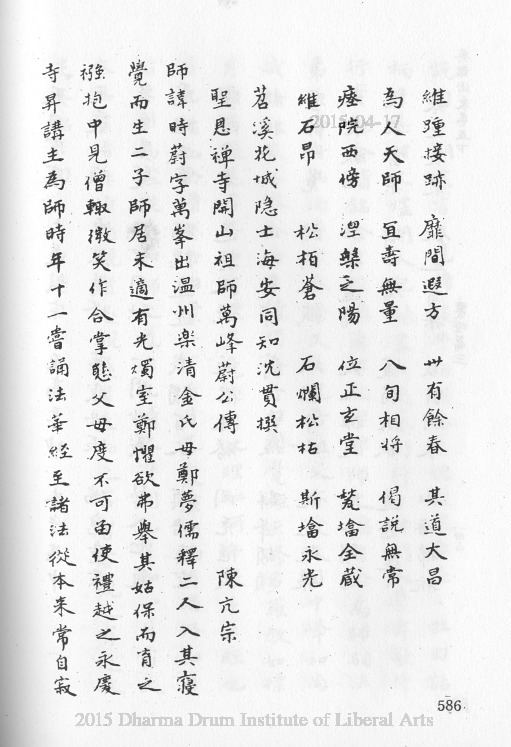 維踵接跡 靡間遐方 世有餘春 其道大昌
為人天師 宜壽無量 八旬相將 偈說無常
瘞院西傍 涅槃之陽 位正玄堂 甃墖全蔵
維石昂 松栢蒼 石爛松枯 斯墖永光
苕溪花城隐士海安同知沈貫撰
聖恩禅寺開山祖師萬峰蔚公傳 陳亢宗
師諱時蔚字萬峯出温州楽清金氏母鄭夢儒釋二人入其寝
覺而生二子師居末適有光燭室鄭懼欲弗舉其姑保而育之
襁抱中見僧輙微笑作合掌態父母度不可留使禮越之永慶
寺昇講主為師時年十一嘗誦法華経至諸法從本来常自寂
586
2015-04-17
2015 Dharma Drum Institute of Liberal Arts